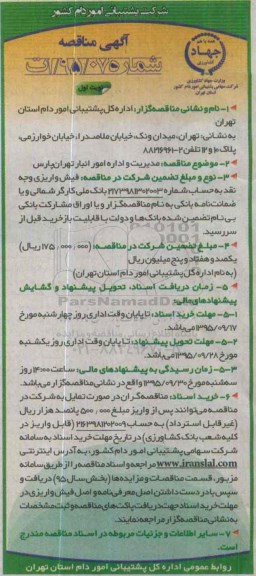 شرکت پشتیبانی امور دام کشور
آگهی مناقصه
شماره ۹۵/۰۷۵/ت
نوبت اول
جهاد
وزارت جهاد کشاورزی
شرکت سهامی پشتیبانی امور دام کشور
استان تهران
۱- نام و نشانی مناقصه‌گزار: اداره کل پشتیبانی امور دام استان
تهران
به نشانی: تهران، میدان ونک، خیابان ملاصدرا، خیابان خوارزمی،
پلاک ۱۰ و ۱۲ تلفن ۲-۸۸۲۱۶۹۶۱
۲- موضوع مناقصه: مدیریت و اداره امور انبار تهران‌پارس
۳- نوع و مبلغ تضمین شرکت در مناقصه: فیش واریزی وجه
نقد به حساب شماره ۲۱۷۳۹۸۱۳۰۲۰۰۳ بانک ملی کارگر شمالی و یا
ضمانت‌نامه بانکی به نام مناقصه‌گزار و یا اوراق مشارکت بانکی
بی‌نام تضمین شده بانک‌ها و دولت با قابلیت بازخرید قبل از
سررسید.
۴- مبلغ تضمین شرکت در مناقصه: (۱۷۵٬۰۰۰٬۰۰۰ ریال)
یکصد و هفتاد و پنج میلیون ریال
(به نام اداره کل پشتیبانی امور دام استان تهران)
۵- زمان دریافت اسناد، تحویل پیشنهاد و گشایش
پیشنهادهای مالی:
۵-۱- مهلت خرید اسناد: تا پایان وقت اداری روز چهارشنبه مورخ
۱۳۹۵/۰۹/۱۷ می‌باشد.
۵-۲- مهلت تحویل پیشنهاد: تا پایان وقت اداری روز یکشنبه
مورخ ۱۳۹۵/۰۹/۲۸ می‌باشد.
۵-۳- زمان رسیدگی به پیشنهادهای مالی: ساعت ۱۴:۰۰ روز
سه‌شنبه مورخ ۱۳۹۵/۰۹/۳۰ واقع در نشانی مناقصه‌گزار می‌باشد.
۶- خرید اسناد: مناقصه‌گران در صورت تمایل به شرکت در
مناقصه می‌توانند پس از واریز مبلغ ۵۰۰٬۰۰۰ پانصد هزار ریال
(غیر قابل استرداد) به حساب (قابل واریز در
کلیه شعب بانک کشاورزی) در تاریخ مهلت خرید اسناد به سامانه
شرکت سهامی پشتیبانی امور دام کشور، به آدرس اینترنتی
www.iranslal.com مراجعه و اسناد مناقصه را از طریق سامانه
مزبور، قسمت مناقصات و مزایده‌ها (بخش سال ۹۵) دریافت و
سپس با در دست داشتن اصل معرفی‌نامه و اصل فیش واریزی در
مهلت خرید اسناد جهت دریافت پاکت‌های مناقصه و ثبت مشخصات
به نشانی مناقصه‌گزار مراجعه نمایند.
۷- سایر اطلاعات و جزئیات مربوطه در اسناد مناقصه مندرج
است.
روابط عمومی اداره کل پشتیبانی امور دام استان تهران